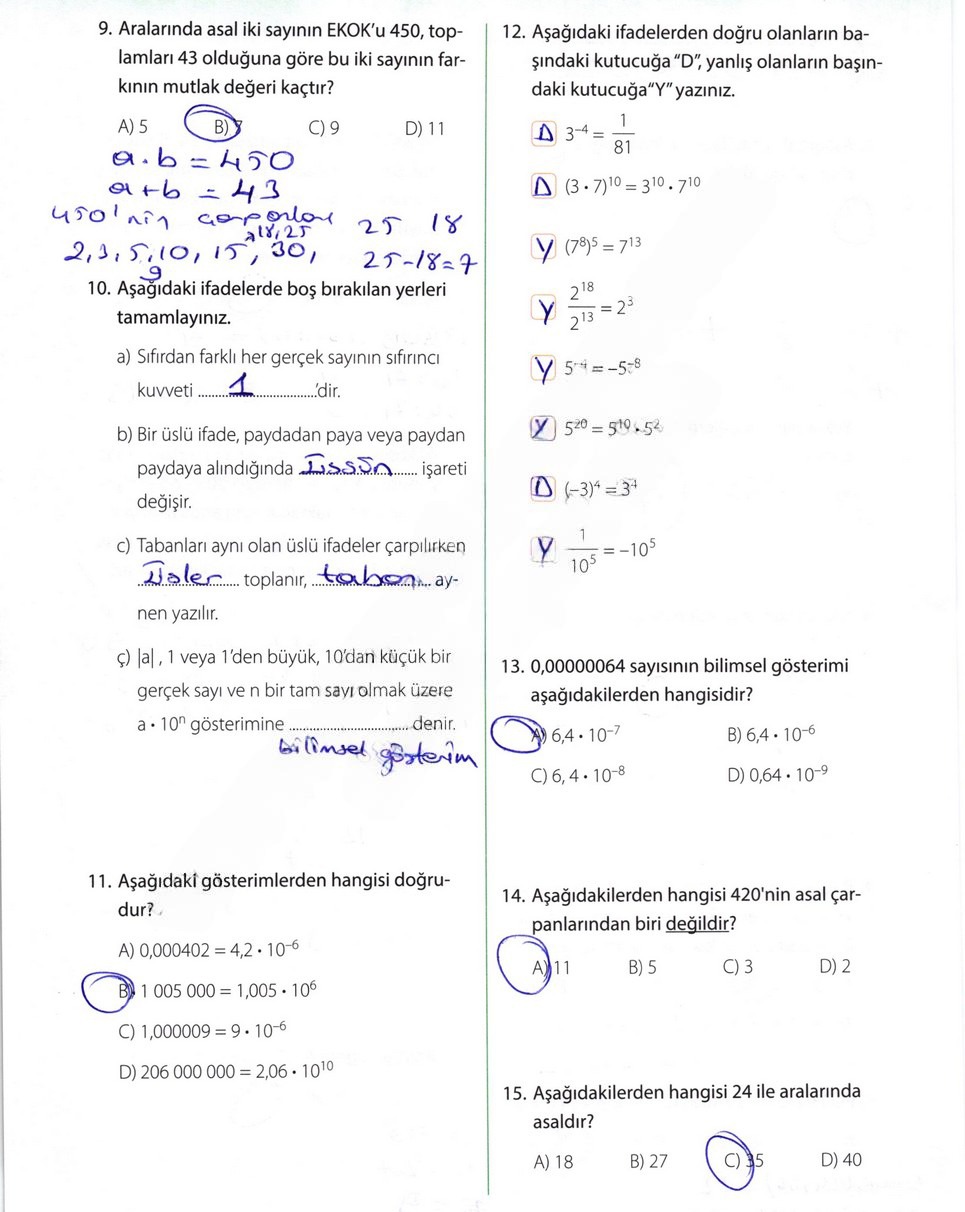 9. Aralarında asal iki sayının EKOK'u 450, top-
lamları 43 olduğuna göre bu iki sayının far-
kının mutlak değeri kaçtır?
A) 5 B) 7 C) 9 D) 11
a.b = 450
a+b = 43
450'nin çarpanları 25 18
18,25
2,3,5,10,15,30, 25-18=7
9
10. Aşağıdaki ifadelerde boş bırakılan yerleri
tamamlayınız.
a) Sıfırdan farklı her gerçek sayının sıfırıncı
kuvveti ........1..................'dir.
b) Bir üslü ifade, paydadan paya veya paydan
paydaya alındığında ..Üssün...... işareti
değişir.
c) Tabanları aynı olan üslü ifadeler çarpılırken
..Üsler..... toplanır, ..taban.... ay-
nen yazılır.
ç) |a| , 1 veya 1'den büyük, 10'dan küçük bir
gerçek sayı ve n bir tam sayı olmak üzere
a • 10ⁿ gösterimine ................................ denir.
bilimsel gösterim
11. Aşağıdaki gösterimlerden hangisi doğru-
dur?
A) 0,000402 = 4,2 • 10⁻⁶
B) 1 005 000 = 1,005 • 10⁶
C) 1,000009 = 9 • 10⁻⁶
D) 206 000 000 = 2,06 • 10¹⁰
12. Aşağıdaki ifadelerden doğru olanların ba-
şındaki kutucuğa "D", yanlış olanların başın-
daki kutucuğa"Y" yazınız.
D 3⁻⁴ = 1/81
D (3 • 7)¹⁰ = 3¹⁰ • 7¹⁰
Y (7⁸)⁵ = 7¹³
Y 2¹⁸/2¹³ = 2³
Y 5⁻⁴ = –5⁻⁸
Y 5²⁰ = 5¹⁰ • 5²
D (–3)⁴ = 3⁴
Y 1/10⁵ = –10⁵
13. 0,00000064 sayısının bilimsel gösterimi
aşağıdakilerden hangisidir?
A) 6,4 • 10⁻⁷ B) 6,4 • 10⁻⁶
C) 6, 4 • 10⁻⁸ D) 0,64 • 10⁻⁹
14. Aşağıdakilerden hangisi 420'nin asal çar-
panlarından biri değildir?
A) 11 B) 5 C) 3 D) 2
15. Aşağıdakilerden hangisi 24 ile aralarında
asaldır?
A) 18 B) 27 C) 35 D) 40